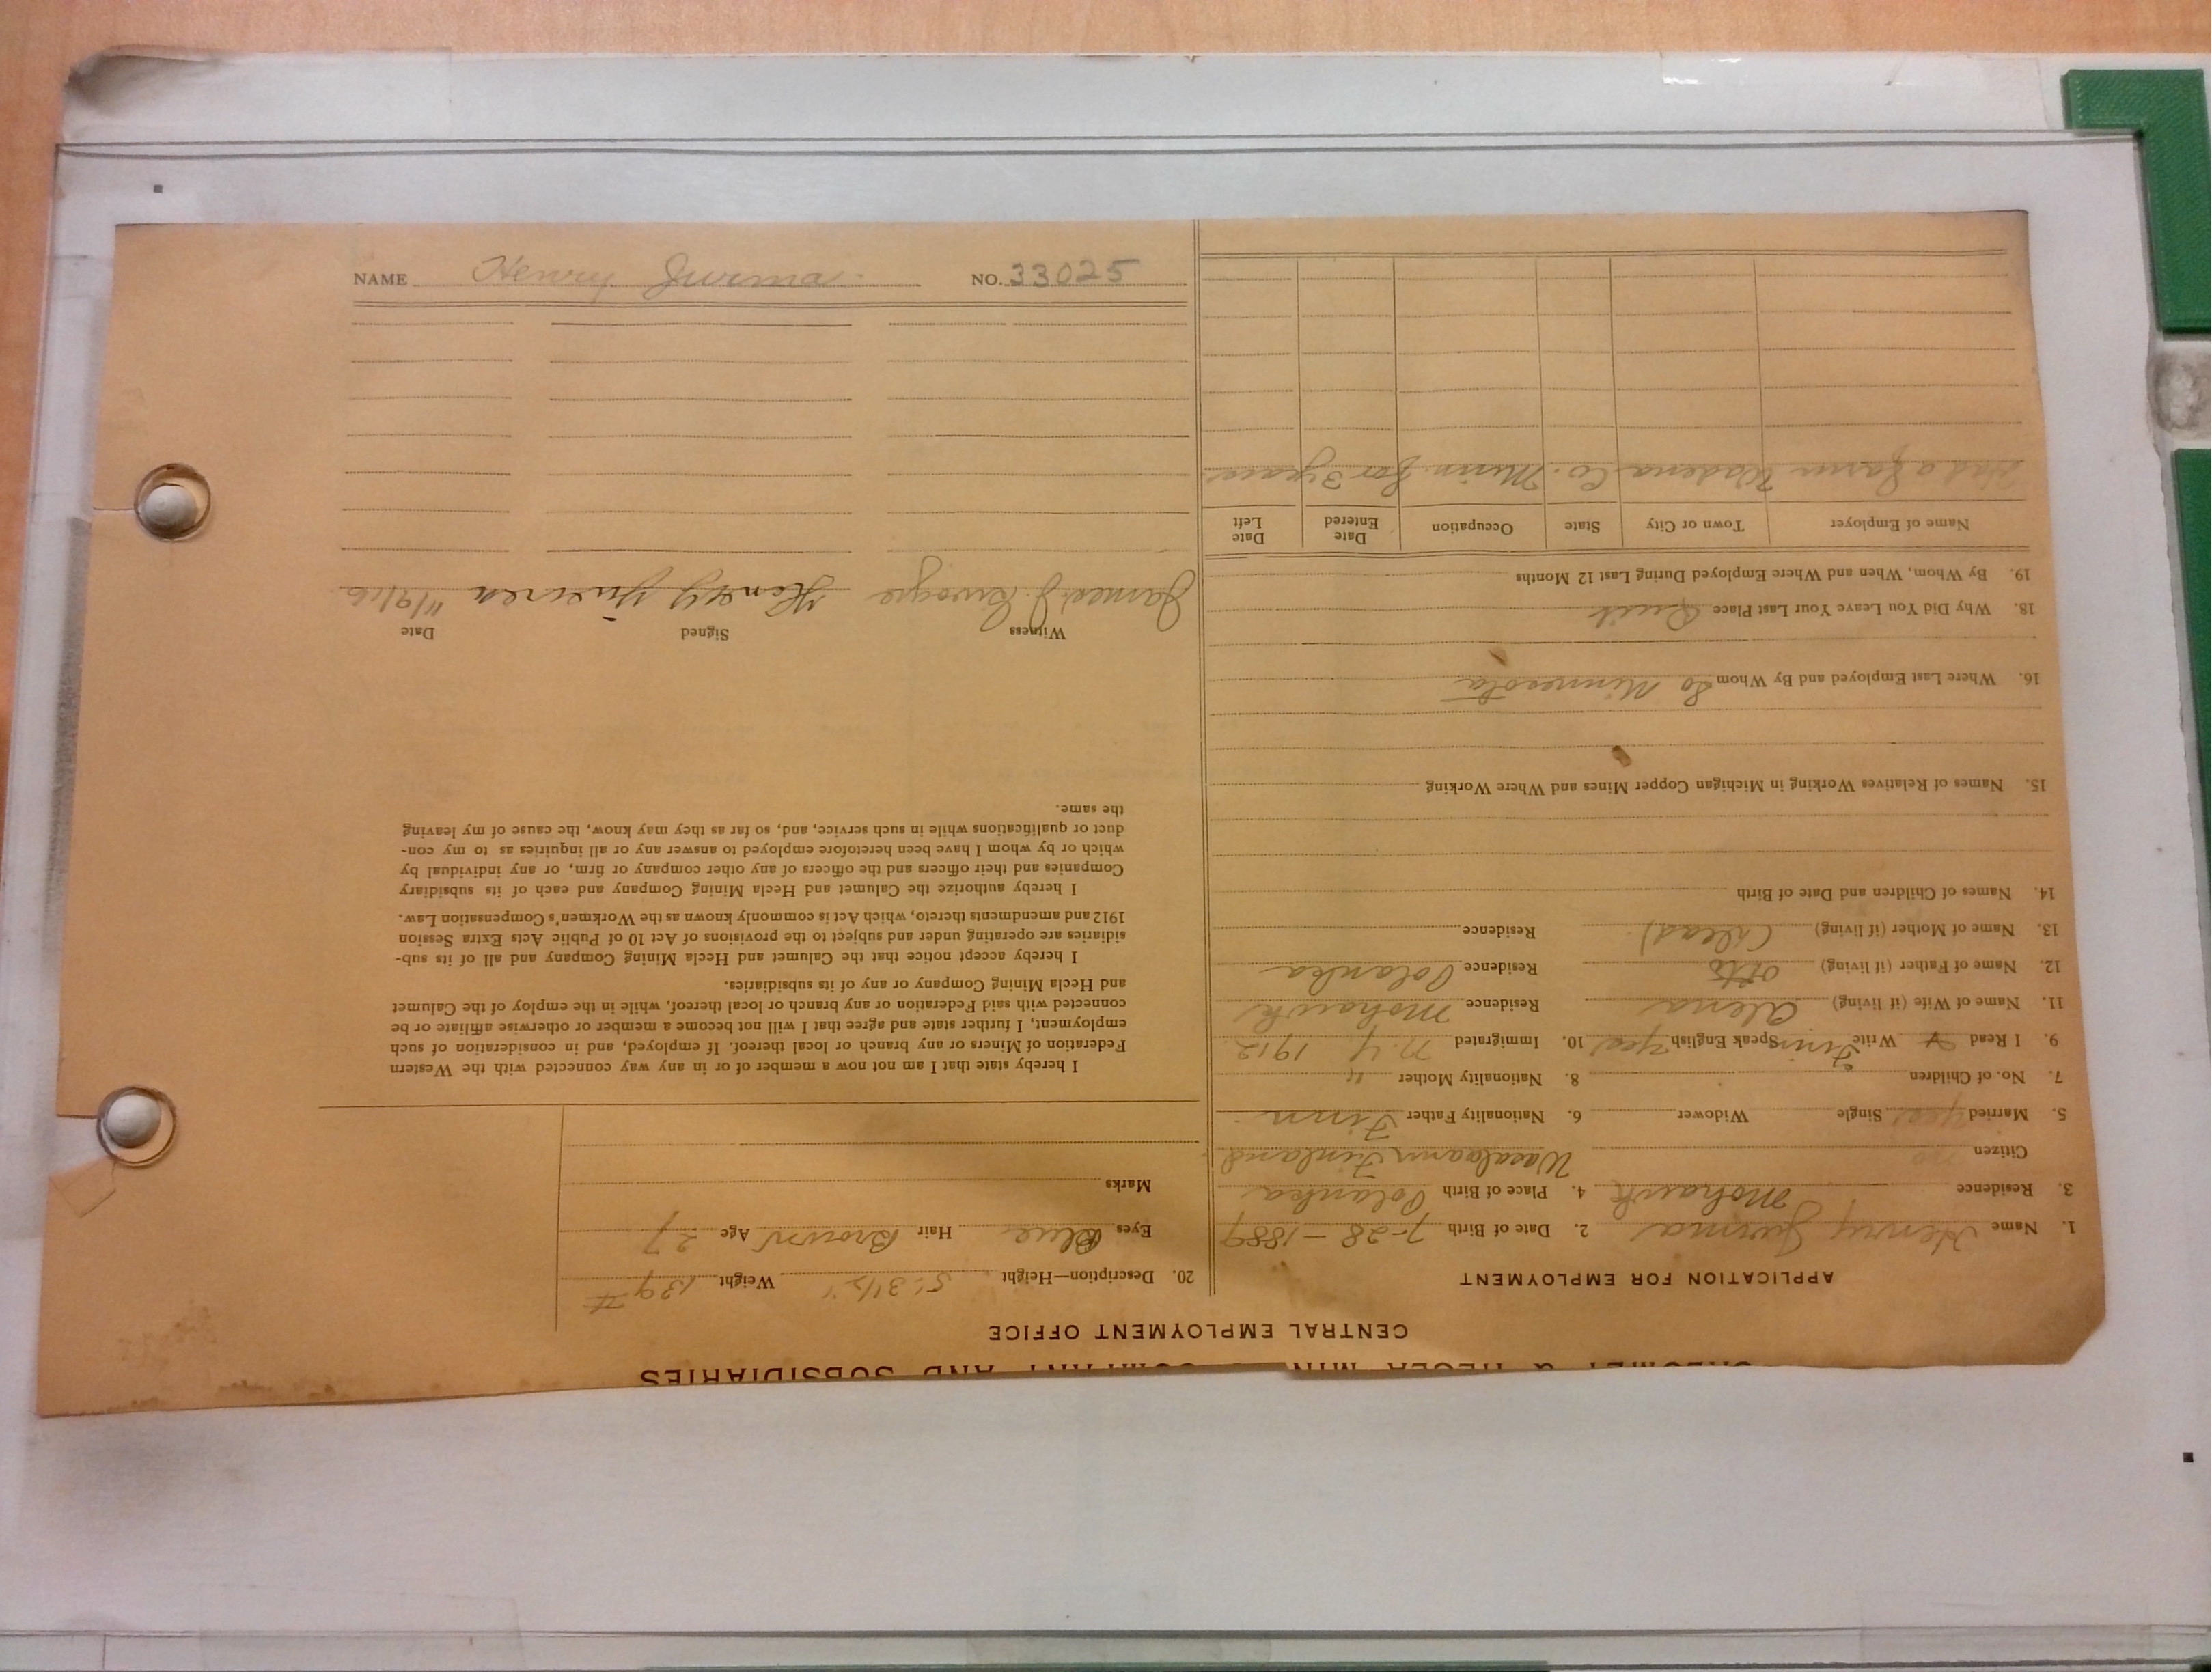 CALUMET & HECLA MINING COMPANY AND SUBSIDIARIES
CENTRAL EMPLOYMENT OFFICE
APPLICATION FOR EMPLOYMENT
1. Name Henry Jurma 2. Date of Birth 7-28-1889
3. Residence Mohawk 4. Place of Birth Polanka
Citizen no Finland
5. Married yes Single Widower 6. Nationality Father Finn
7. No. of Children 8. Nationality Mother "
9. I Read Write Finn Speak English yes 10. Immigrated N.Y 1912
11. Name of Wife (if living) Alena Residence Mohawk
12. Name of Father (if living) Otto Residence Polanka
13. Name of Mother (if living) (dead) Residence
14. Names of Children and Date of Birth
15. Names of Relatives Working in Michigan Copper Mines and Where Working
16. Where Last Employed and By Whom So Minnesota
18. Why Did You Leave Your Last Place Quit
19. By Whom, When and Where Employed During Last 12 Months
Name of Employer Town or City State Occupation Date Entered Date Left
Had a farm Wadena Co. Minn for 3 years
20. Description—Height 5' 3 1/2" Weight 139 #
Eyes Blue Hair Brown Age 27
Marks
I hereby state that I am not now a member of or in any way connected with the Western
Federation of Miners or any branch or local thereof. If employed, and in consideration of such
employment, I further state and agree that I will not become a member or otherwise affiliate or be
connected with said Federation or any branch or local thereof, while in the employ of the Calumet
and Hecla Mining Company or any of its subsidiaries.
I hereby accept notice that the Calumet and Hecla Mining Company and all of its sub-
sidiaries are operating under and subject to the provisions of Act 10 of Public Acts Extra Session
1912 and amendments thereto, which Act is commonly known as the Workmen's Compensation Law.
I hereby authorize the Calumet and Hecla Mining Company and each of its subsidiary
Companies and their officers and the officers of any other company or firm, or any individual by
which or by whom I have been heretofore employed to answer any or all inquiries as to my con-
duct or qualifications while in such service, and, so far as they may know, the cause of my leaving
the same.
Witness Signed Date
James J. Henry 11/9/16
NAME Henry Jurma NO. 33025